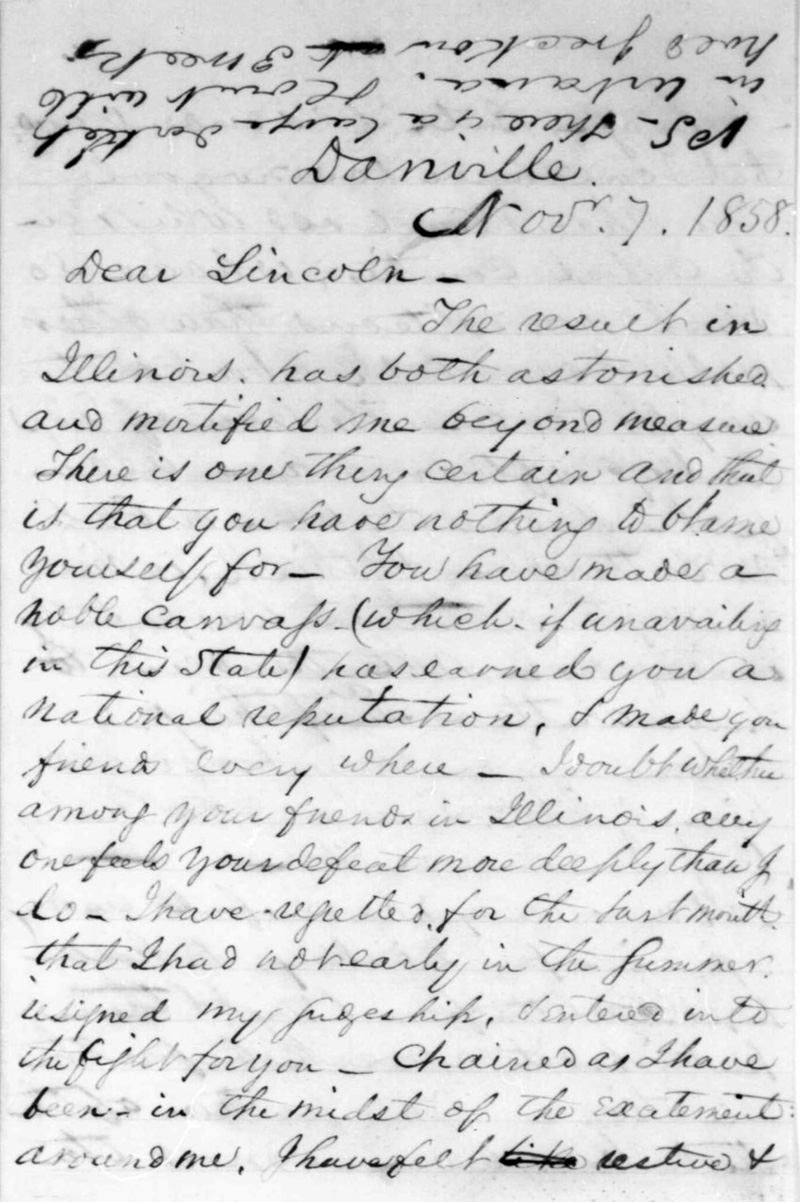 Danville.
Nov. 7. 1858.
Dear Lincoln –
The result in
Illinois. has both astonished
and mortified me beyond measure
There is one thing certain and that
is that you have nothing to blame
yourself for – You have made a
noble canvass – (which – if unavailing
in this State) has earned you a
national reputation, & made you
friends every where – I doubt whether
among your friends in Illinois, any
one feels your defeat more deeply than I
do – I have regretted, for the last month
that I had not early in the Summer.
resigned my Judgeship, & entered into
the fight for you – Chained as I have
been – in the midst of the excitement
around me, I have felt like restive &
P.S. – There is a large docket
in Urbana. Court will
hold
3 weeks